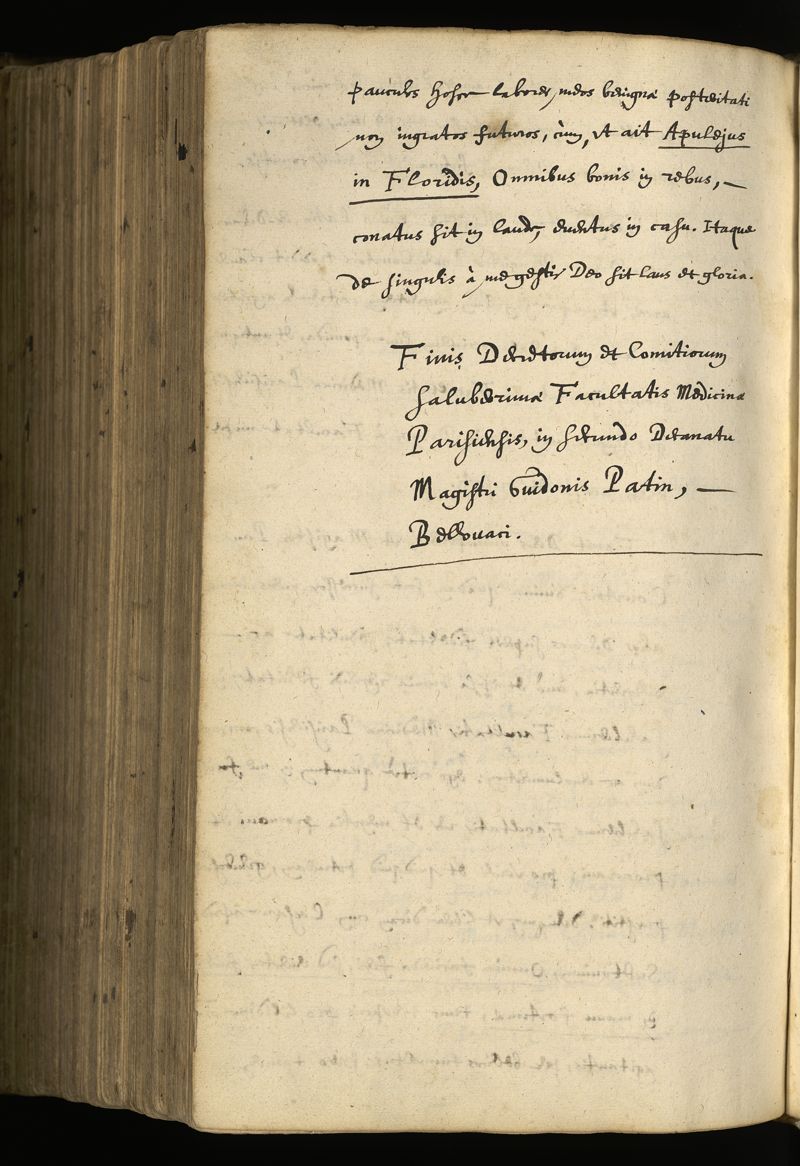 pauculos hosce labores meos benignæ posteritati
non ingratos futuros, cùm, ut ait Apulejus
in Floridis, Omnibus bonis in rebus,
conatus sit in laude, eventus in casu. Itaque
de singulis à me gestis Deo sit laus et gloria.
Finis Decretorum et Comitiorum
saluberrimæ Facultatis Medicinæ
Parisiensis, in secundo Decanatu
Magistri Guidonis Patin,
Bellovaci.